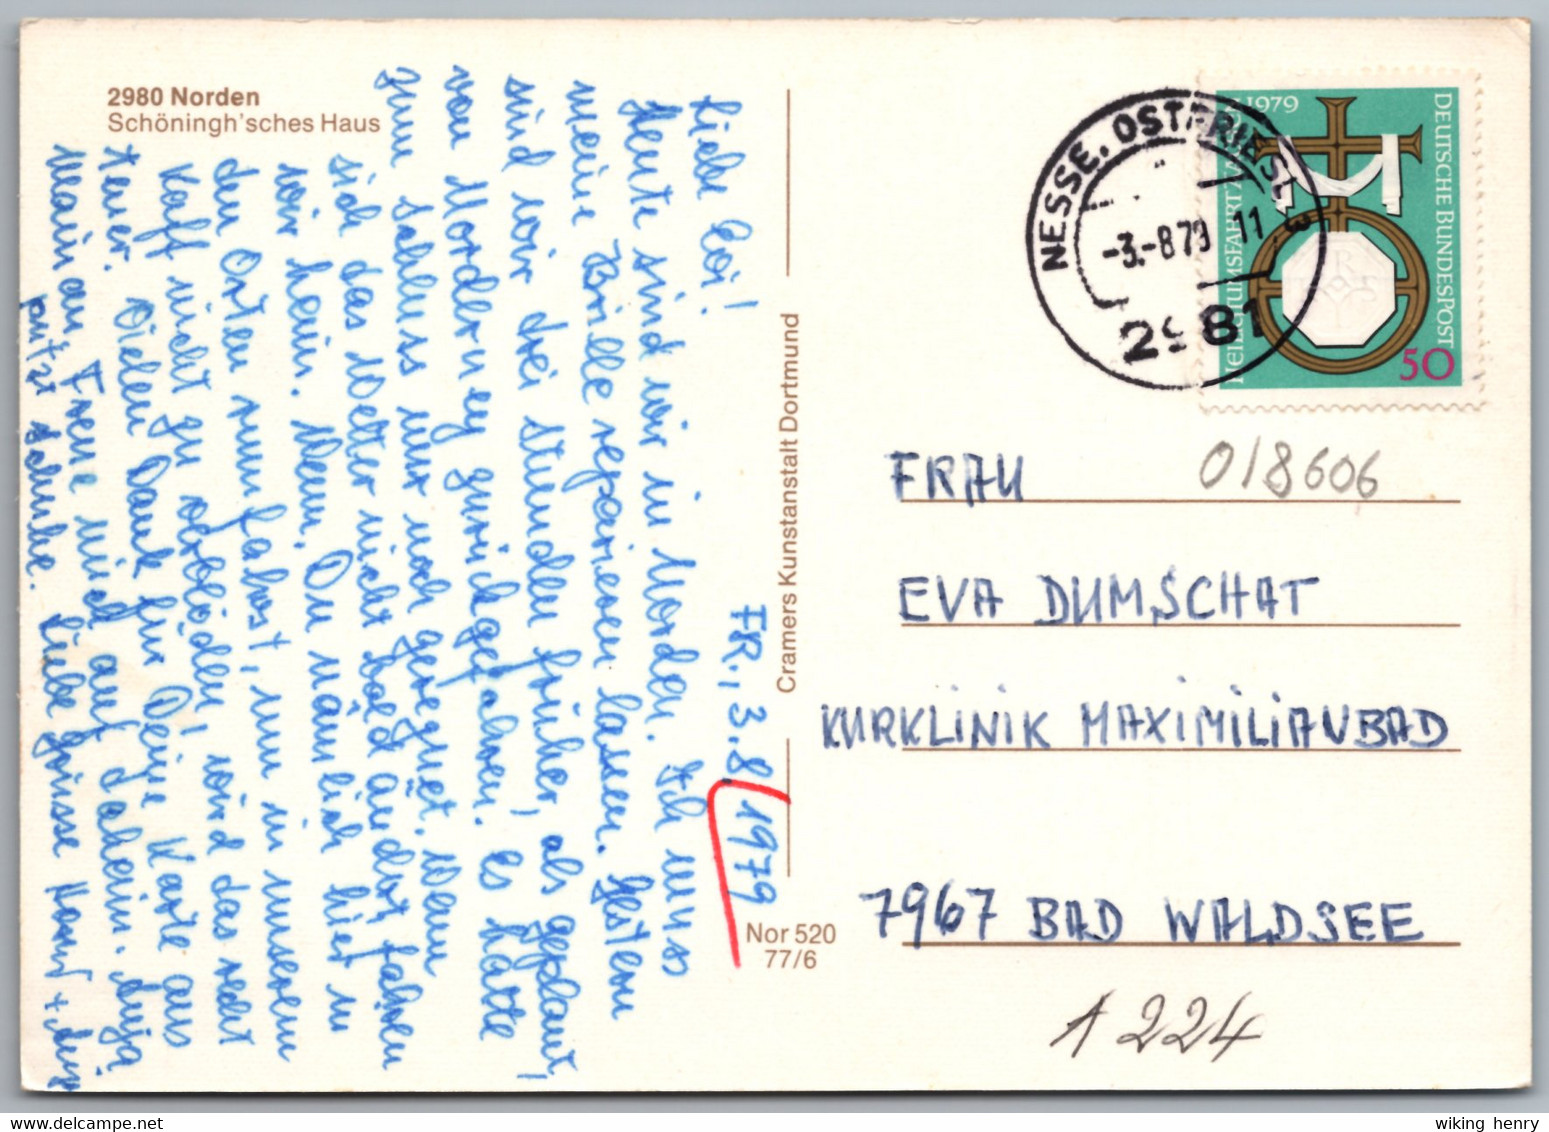 2980 Norden
Schöningh'sches Haus
FR., 3.8.1979
Liebe Evi!
Heute sind wir in Norden. Ich muss
meine Brille reparieren lassen. Gestern
sind wir drei Stunden früher, als geplant,
von Norderney zurückgefahren. Es hätte
zum Schluss nur noch geregnet. Wenn
sich das Wetter nicht bald ändert fahren
wir heim. Wenn Du nämlich hier in
den Orten rumfahrst, um in unserem
Kaff nicht zu verblöden, wird das recht
teuer. Vielen Dank für Deine Karte aus
Mainau. Freue mich auf daheim.
putzt Schuhe. Liebe Grüsse
Cramers Kunstanstalt Dortmund
Nor 520
77/6
NESSE, OSTFRIESL
-3.-8.79 11
2981
1979
DEUTSCHE BUNDESPOST
50
018606
FRAU
EVA DUMSCHAT
KURKLINIK MAXIMILIANBAD
7967 BAD WALDSEE
A 224
wiking henry